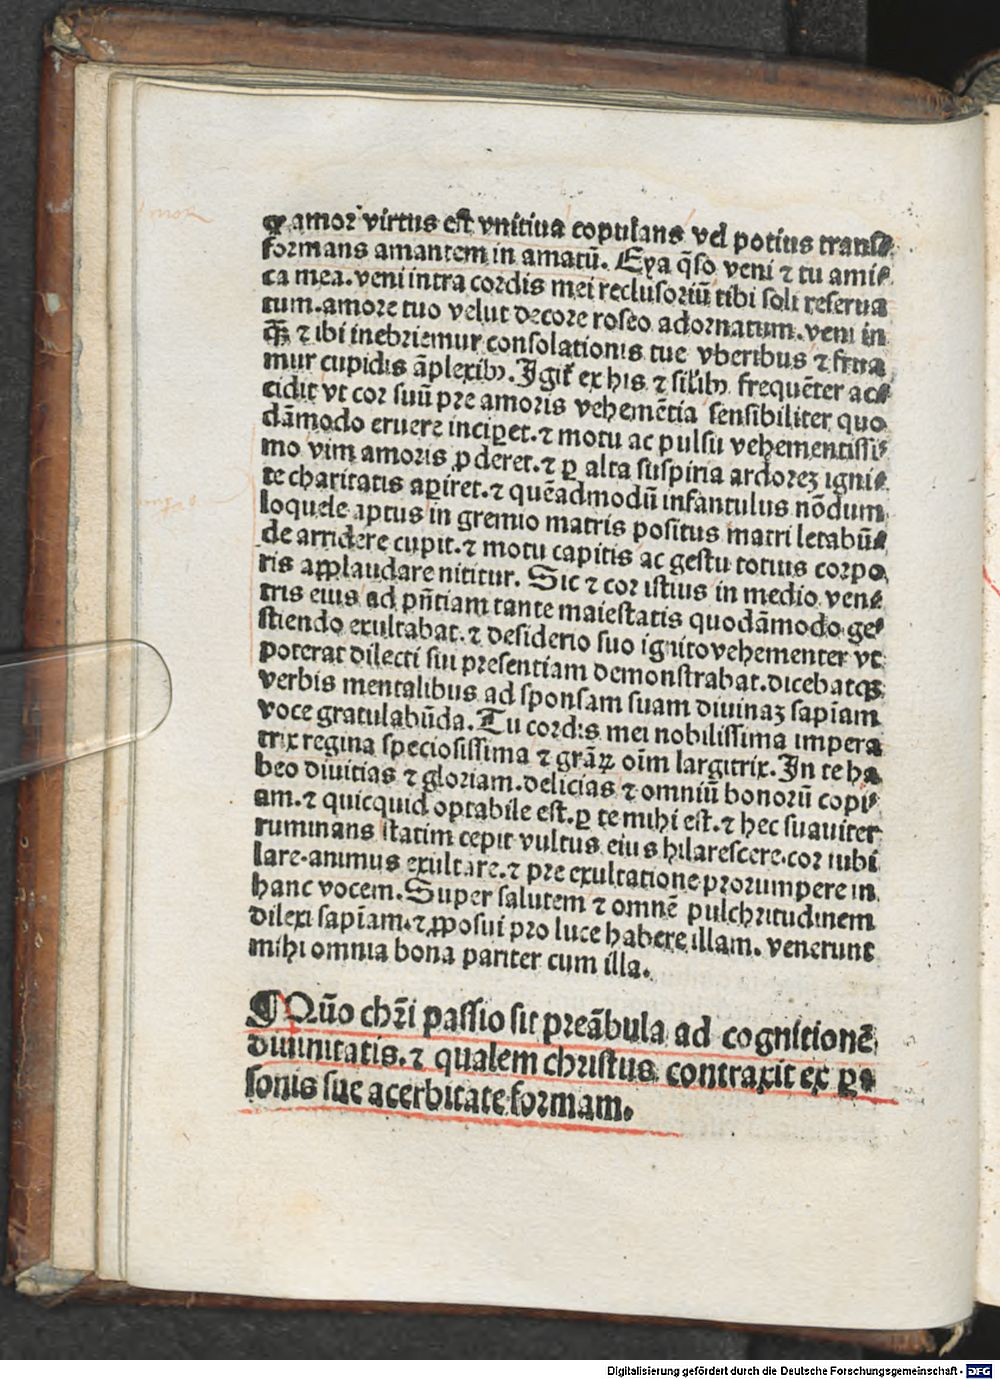 ꝙ amor virtus est vnitiua copulans vel potius trans⸗
formans amantem in amatū. Eya q̄so veni ⁊ tu ami⸗
ca mea. veni intra cordis mei reclusoriū tibi soli reserua
tum. amore tuo velut decore roseo adornatum. veni in
qȝ̄ ⁊ ibi inebriemur consolationis tue vberibus ⁊ frua
mur cupidis āplexibꝰ. Igit̄ ex his ⁊ sil̄ibꝰ frequēter ac⸗
cidit vt cor suū pre amoris vehemētia sensibiliter quo
dāmodo eruere inciꝑet. ⁊ motu ac pulsu vehementissi⸗
mo vim amoris ꝓderet. ⁊ ꝑ alta suspiria ardoreȝ igni⸗
te charitatis aꝑiret. ⁊ quēadmodū infantulus nōdum
loquele aptus in gremio matris positus matri letabū⸗
de arridere cupit. ⁊ motu capitis ac gestu totius corpo
ris applaudare nititur. Sic ⁊ cor istius in medio ven⸗
tris eius ad pn̄tiam tante maiestatis quodāmodo ge⸗
stiendo exultabat. ⁊ desiderio suo ignito vehementer vt
poterat dilecti sui presentiam demonstrabat. dicebatqȝ
verbis mentalibus ad sponsam suam diuinaȝ sapīam
voce gratulabūda. Tu cordis mei nobilissima impera
trix regina speciosissima ⁊ grāꝝ oīm largitrix. In te ha
beo diuitias ⁊ gloriam. delicias ⁊ omniū bonorū copi⸗
am. ⁊ quicquid optabile est. ꝑ te mihi est. ⁊ hec suauiter
ruminans statim cepit vultus eius hilarescere. cor iubi
lare. animus exultare. ⁊ pre exultatione prorumpere in
hanc vocem. Super salutem ⁊ omnē pulchritudinem
dilexi sapīam. ⁊ ꝓposui pro luce habere illam. venerunt
mihi omnia bona pariter cum illa.
¶ Quō chr̄i passio sit preābula ad cognitionē
diuinitatis. ⁊ qualem christus contraxit ex ꝑ⸗
sonis sue acerbitate formam.
Digitalisierung gefördert durch die Deutsche Forschungsgemeinschaft - DFG